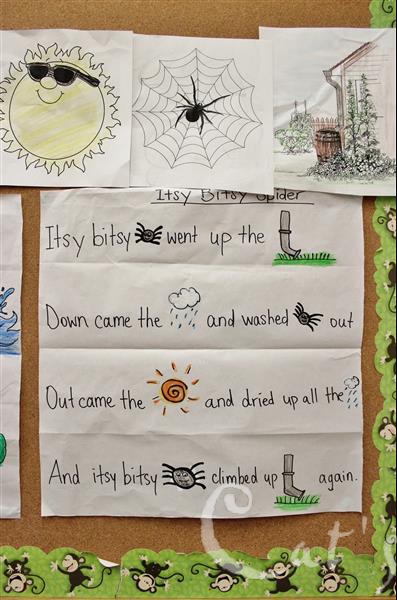 Itsy Bitsy Spider
Itsy bitsy went up the
Down came the and washed out
Out came the and dried up all the
And itsy bitsy climbed up again.
Cat's